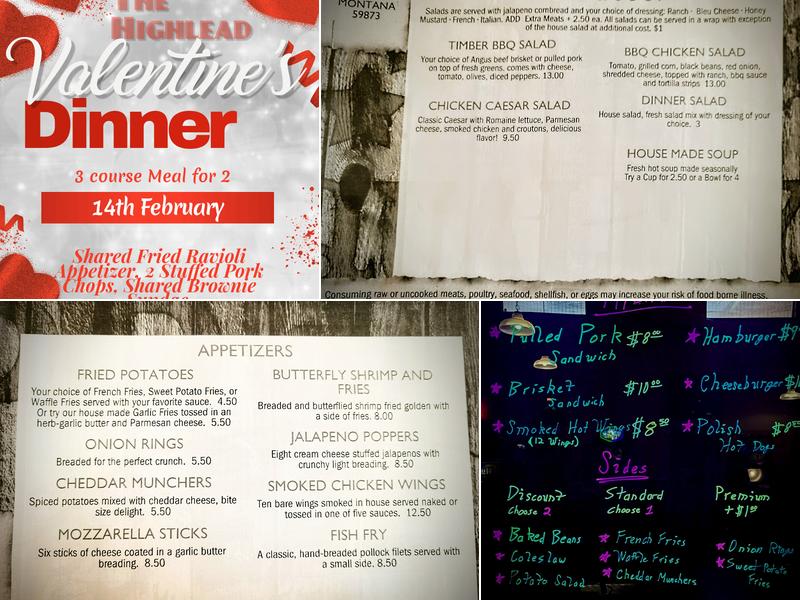 THE
HIGHLEAD
Valentine's
Dinner
3 course Meal for 2
14th February
Shared Fried Ravioli
Appetizer, 2 Stuffed Pork
Chops, Shared Brownie
Sundae
MONTANA
59873
Salads are served with jalapeno cornbread and your choice of dressing: Ranch · Bleu Cheese · Honey
Mustard · French · Italian. ADD Extra Meats + 2.50 ea. All salads can be served in a wrap with exception
of the house salad at additional cost. $1
TIMBER BBQ SALAD
Your choice of Angus beef brisket or pulled pork
on top of fresh greens, comes with cheese,
tomato, olives, diced peppers. 13.00
CHICKEN CAESAR SALAD
Classic Caesar with Romaine lettuce, Parmesan
cheese, smoked chicken and croutons, delicious
flavor! 9.50
BBQ CHICKEN SALAD
Tomato, grilled corn, black beans, red onion,
shredded cheese, topped with ranch, bbq sauce
and tortilla strips 13.00
DINNER SALAD
House salad, fresh salad mix with dressing of your
choice. 3
HOUSE MADE SOUP
Fresh hot soup made seasonally
Try a Cup for 2.50 or a Bowl for 4
Consuming raw or uncooked meats, poultry, seafood, shellfish, or eggs may increase your risk of food borne illness.
APPETIZERS
FRIED POTATOES
Your choice of French Fries, Sweet Potato Fries, or
Waffle Fries served with your favorite sauce. 4.50
Or try our house made Garlic Fries tossed in an
herb-garlic butter and Parmesan cheese. 5.50
ONION RINGS
Breaded for the perfect crunch. 5.50
CHEDDAR MUNCHERS
Spiced potatoes mixed with cheddar cheese, bite
size delight. 5.50
MOZZARELLA STICKS
Six sticks of cheese coated in a garlic butter
breading. 8.50
BUTTERFLY SHRIMP AND
FRIES
Breaded and butterflied shrimp fried golden with
a side of fries. 8.00
JALAPENO POPPERS
Eight cream cheese stuffed jalapenos with
crunchy light breading. 8.50
SMOKED CHICKEN WINGS
Ten bare wings smoked in house served naked or
tossed in one of five sauces. 12.50
FISH FRY
A classic, hand-breaded pollock filets served with
a small side. 8.50
Pulled Pork $8.00
Sandwich
Brisket $10.00
Sandwich
Smoked Hot Wings $8.50
(12 Wings)
Hamburger
Cheeseburger
Polish
Hot Dogs
Sides
Discount
choose 2
Baked Beans
Coleslaw
Potato Salad
Standard
choose 1
French Fries
Waffle Fries
Cheddar Munchers
Premium
+$1.00
Onion Rings
Sweet Potato
Fries